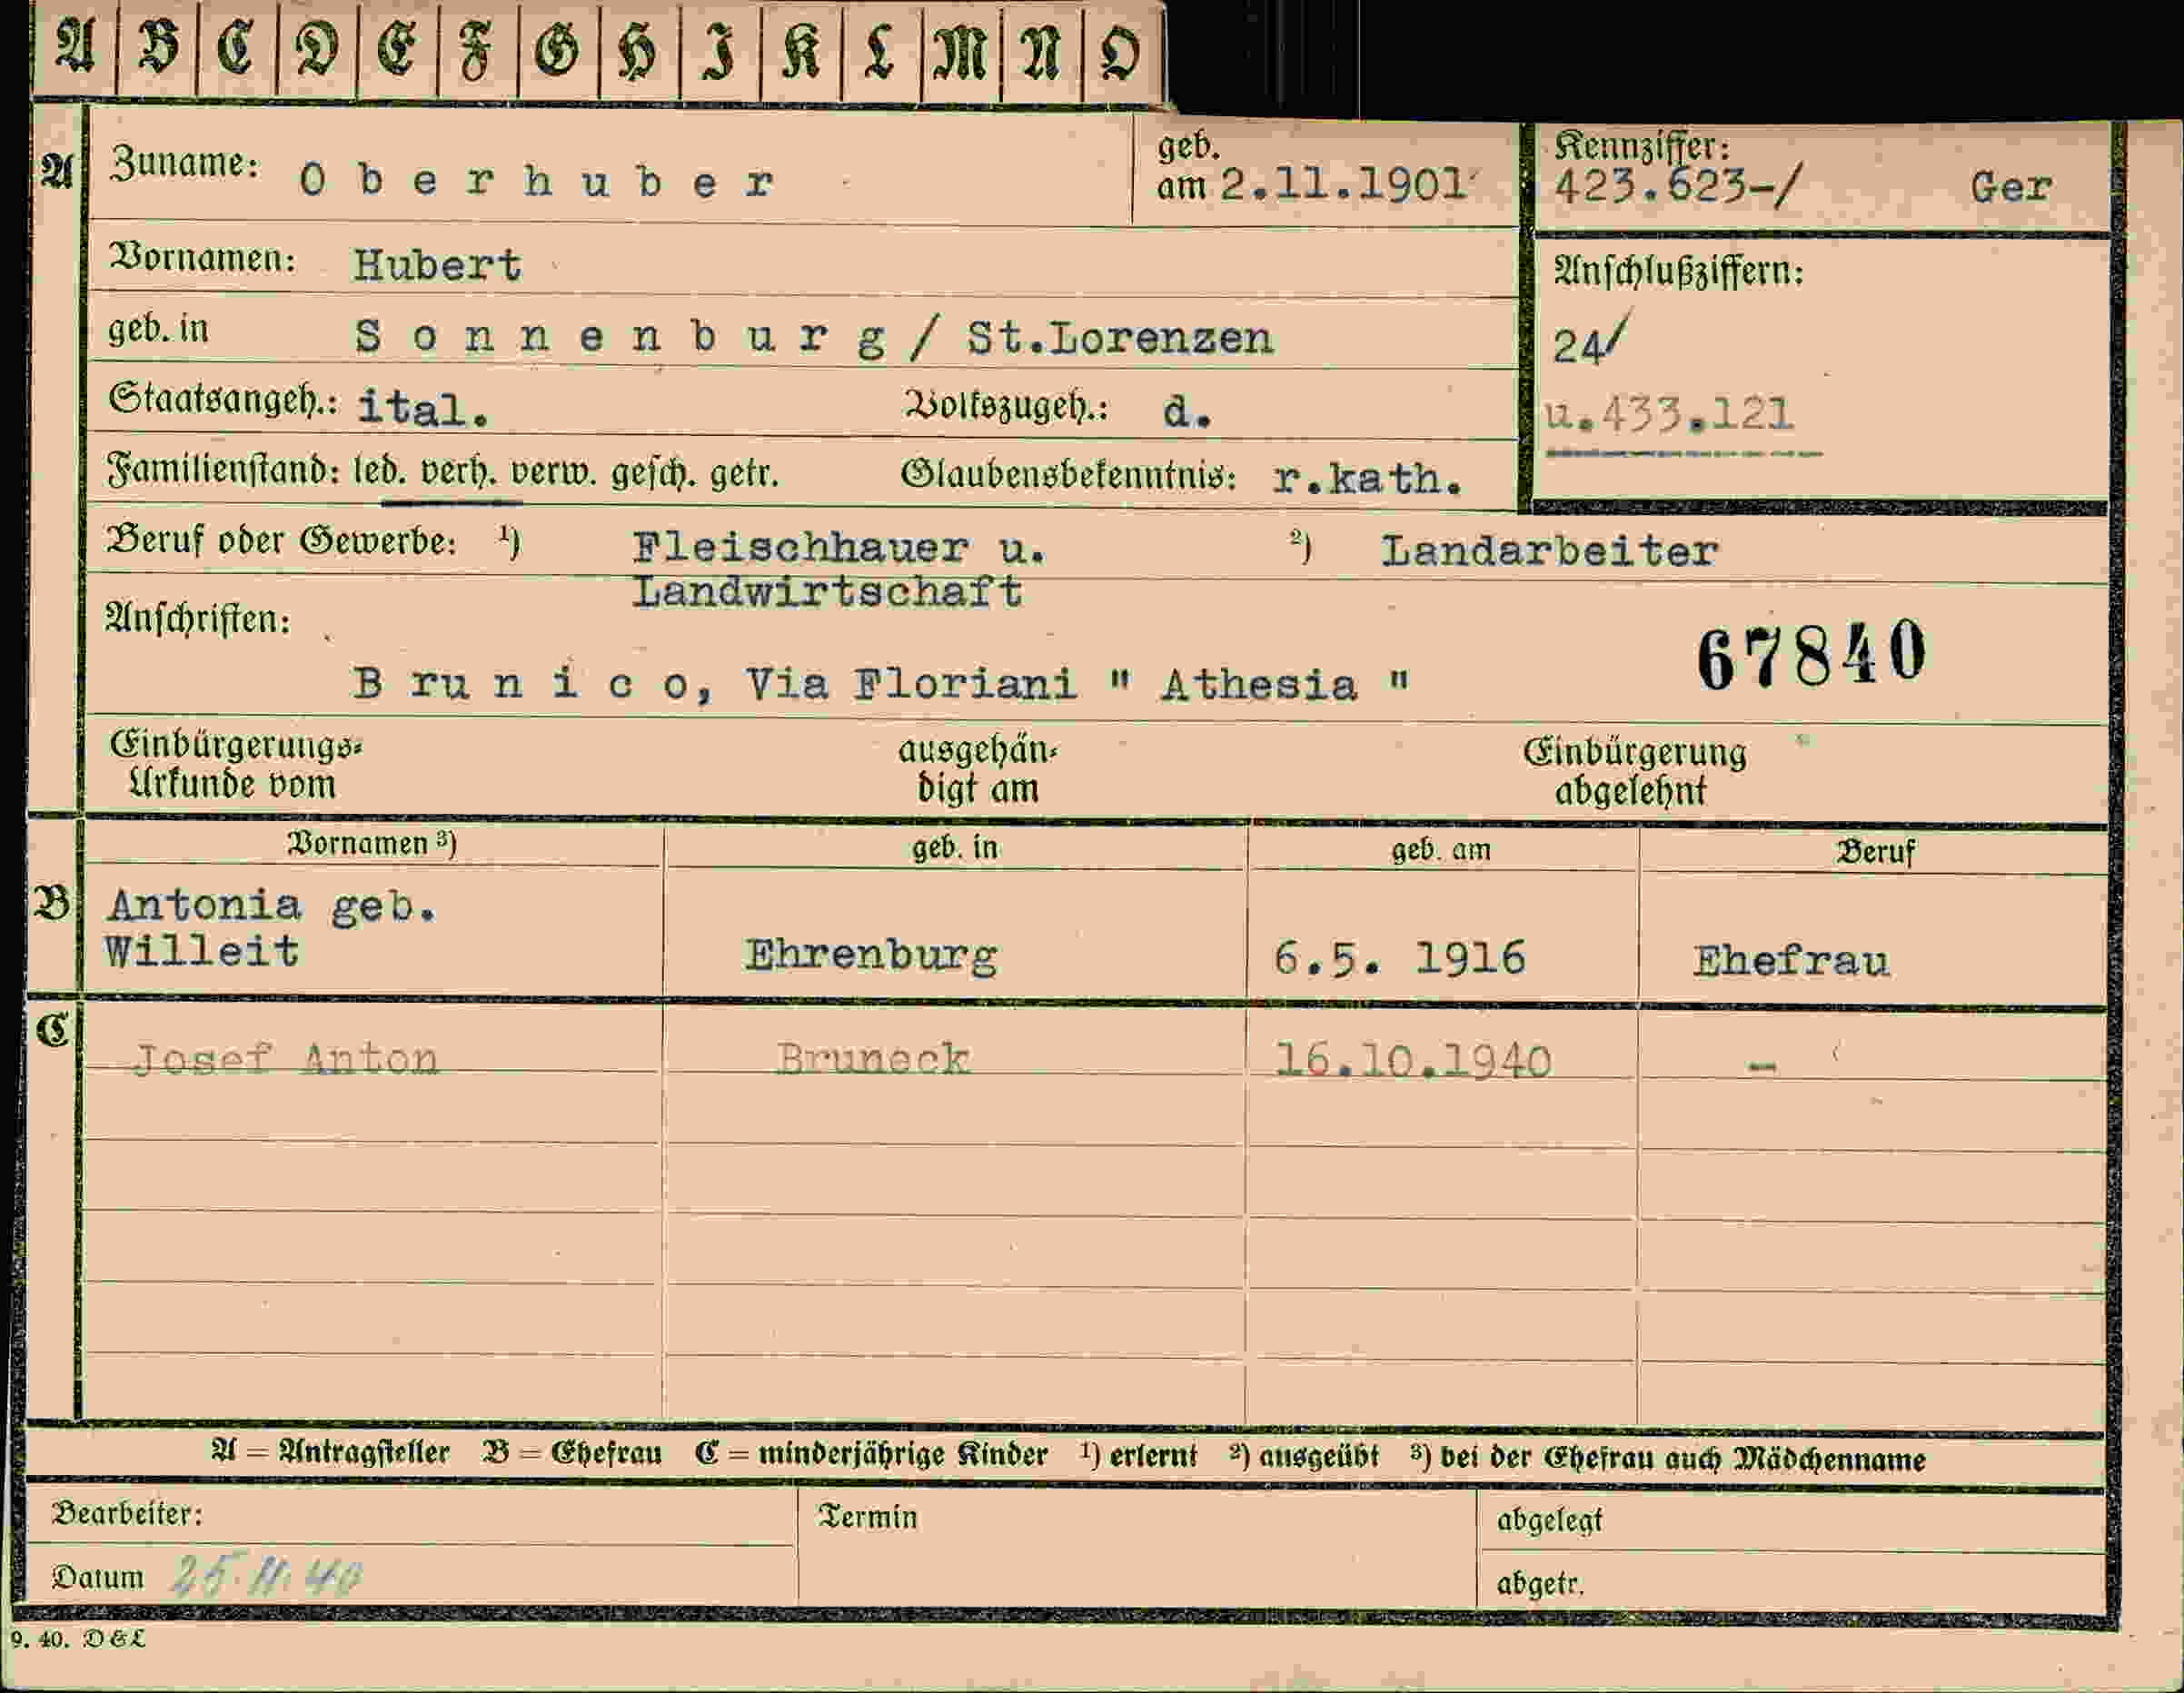 A B C D E F G H I K L M N O
A Zuname: Oberhuber geb. am 2.11.1901 Kennziffer: 423.623-/ Ger
Vornamen: Hubert
Anschlußziffern:
geb. in Sonnenburg / St.Lorenzen
24/
Staatsangeh.: ital. Volkszugeh.: d.
u.433.121
Familienstand: led. verh. verw. gesch. getr. Glaubensbekenntnis: r.kath.
Beruf oder Gewerbe: ¹) Fleischhauer u. ²) Landarbeiter
Landwirtschaft
Anschriften:
67840
Brunico, Via Floriani " Athesia "
Einbürgerungs= ausgehän= Einbürgerung
Urkunde vom digt am abgelehnt
Vornamen ³) geb. in geb. am Beruf
B Antonia geb.
Willeit Ehrenburg 6.5. 1916 Ehefrau
C
Josef Anton Bruneck 16.10.1940 -
A = Antragsteller B = Ehefrau C = minderjährige Kinder ¹) erlernt ²) ausgeübt ³) bei der Ehefrau auch Mädchenname
Bearbeiter: Termin abgelegt
Datum 25.11.40 abgetr.
9. 40. D&L